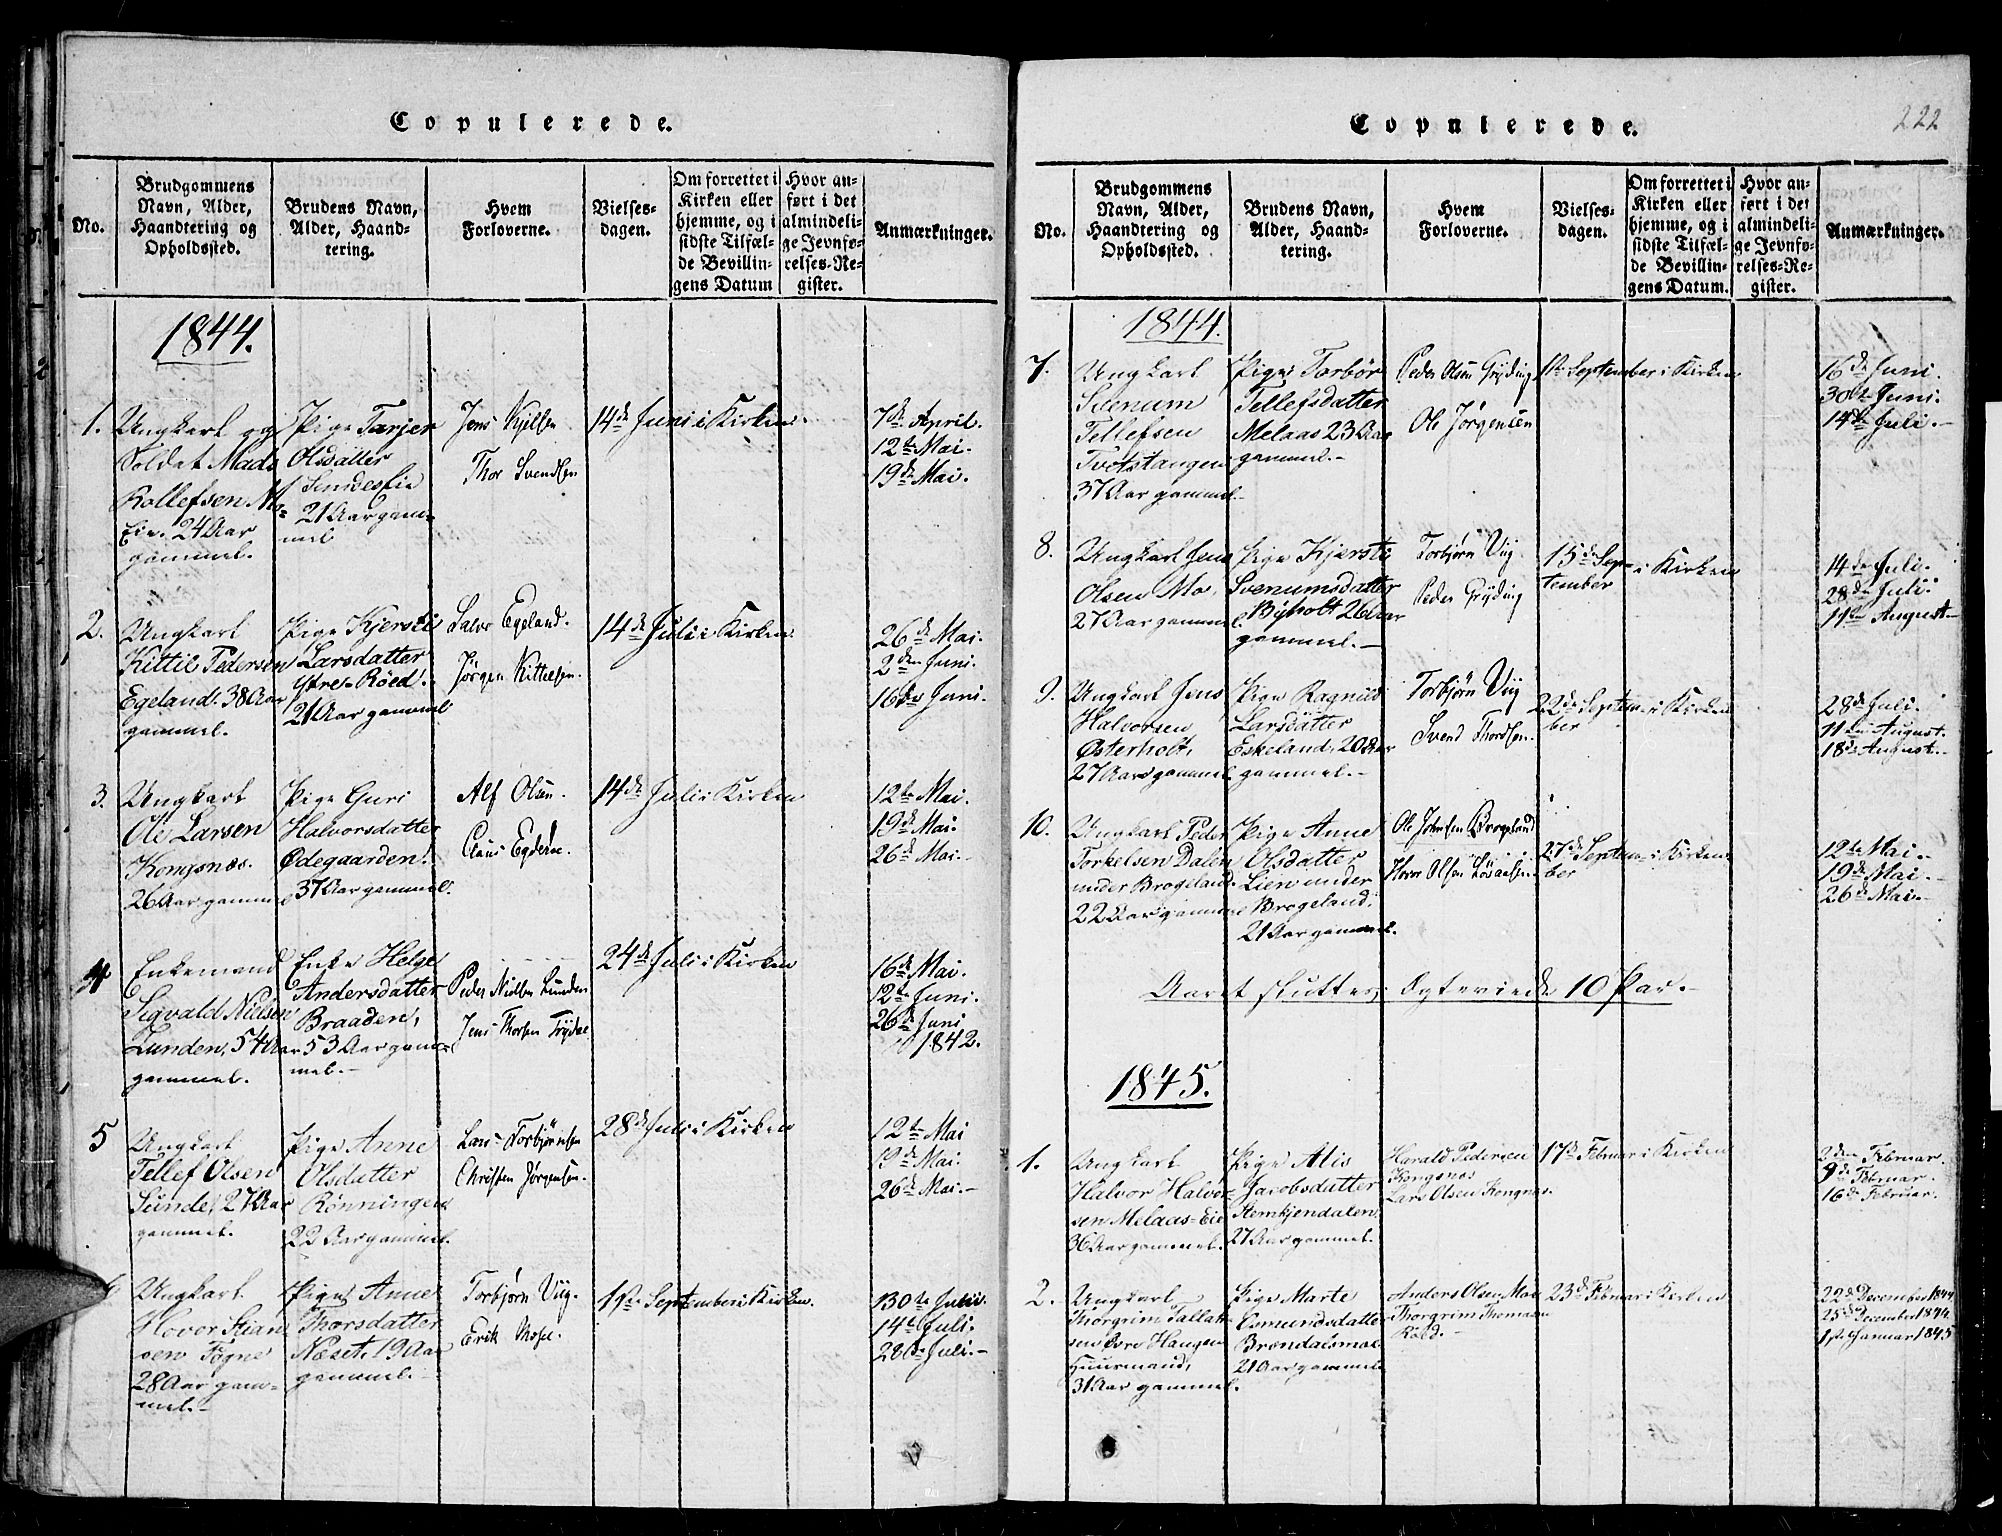 Copulerede.
No.
Brudgommens
Navn, Alder,
Haandtering og
Opholdssted.
Brudens Navn,
Alder, Haand-
tering.
Hvem
Forloverne.
Vielses-
dagen.
Om forrettet i
Kirken eller
hjemme, og i
sidste Tilfæl-
de Bevillin-
gens Datum
Hvor an-
ført i det
almindeli-
ge Jevnfø-
relses-Re-
gister.
Anmærkninger.
1844.
1.
Ungkarl og
Soldat Mads
Rollefsen Mo-
Eie. 24 Aar
gammel.
Pige Tarjer
Olsdatter
21 Aar gam-
mel
Jens Kjelsen
Thor Svendsen
14de Juni i Kirken.
7de April.
12te Mai.
19de Mai.
2.
Ungkarl
Kittil Pedersen
Egeland. 38 Aar
gammel.
Pige Kjersti
Larsdatter
Ytre-Röed.
21 Aar gammel
Salve Egeland.
Jørgen Kittelsen.
14de Juli i Kirken
26de Mai.
2den Juni.
16de Juni.
3.
Ungkarl
Ole Larsen
Kongsnæs.
26 Aar gammel
Pige Guri
Halvorsdatter
Ødegaarden.
37 Aar gammel.
Alf Olsen.
Claus Egderne.
14de Juli i Kirken
12te Mai.
19de Mai.
26de Mai.
4
Enkemand
Sigvald Nielsen
Lunden, 54 Aar
gammel.
Enke Helge
Andersdatter
Braaden,
53 Aar gam-
mel.-
Peder Nielsen Lunden
Jens Thorsen
24de Juli i Kirken
16de Mai.
12te Juni.
26de Juni
1842.
5
Ungkarl
Tellef Olsen
Sunde, 27 Aar
gammel.
Pige Anne
Olsdatter
Rönningen
22 Aar gammel.
Lars Torbjørnsen
Christen Jørgensen.
28de Juli i Kirken
12te Mai
19de Mai.
26de Mai.-
Ungkarl
Hovor Stian
sen Tögne
28 Aar gam-
mel.-
Pige Anne
Thorsdatter
Næset, 19 Aar
gammel.-
Torbjørn Viig.
Erik Mose.
1ste September i Kirken.
30te Juni.
14de Juli.
28de Juli.-
Copulerede.
222
No.
Brudgommens
Navn, Alder,
Haandtering og
Opholdssted.
Brudens Navn,
Alder, Haand-
tering.
Hvem
Forloverne.
Vielses-
dagen.
Om forrettet i
Kirken eller
hjemme, og i
sidste Tilfæl-
de Bevillin-
gens Datum.
Hvor an-
ført i det
almindeli-
ge Jevnfø-
relses-Re-
gister.
Anmærkninger.
1844.
7.
Ungkarl
Svenum
Tellefsen
Tvetstangen
37 Aar gammel.
Pige Torbör
Tellefsdatter
Melaas 23 Aar
gammel.-
Peder Olsen Gryding
Ole Jørgensen
1ste September i Kirken
16de Juni.
30te Juni.
14de Juli.-
8.
Ungkarl Jens
Olsen Mo.
27 Aar gammel
Pige Kjersti
Svenumsdatter
Byholt 26 Aar
gammel.-
Torbjørn Viig.
Peder Gryding
15de Sep- i Kirken
tember
14de Juli.
28de Juli.
11te August-
9.
Ungkarl Jens
Halvorsen
Østerholt,
27 Aar gammel
Pige Ragnild
Larsdatter
Eskeland, 20 Aar
gammel.-
Torbjørn Viig
Svend Thordsen.
22de Septem- i Kirken
ber
28de Juli.
11te August.
18de August.-
10.
Ungkarl Peder
Torkelsen Dalen
under Brogeland.
22 Aar gammel
Pige Anne
Olsdatter
Lien under
Brogeland,
21 Aar gammel.
Ole Johnsen Brogeland
Hovor Olsen
27de Septem- i Kirken
ber
12te Mai.-
19de Mai.-
26de Mai.-
Aaret sluttes; Ægteviede 10 Par.-
1845.
1.
Ungkarl
Halvor Halvor-
sen Melaas-Eie
36 Aar gammel.
Pige Alis
Jacobsdatter
Stemkjendalen,
27 Aar gammel.
Harald Pedersen
Kongsnæs
Lars Olsen Kongnæs.
17de Februar i Kirken
2den Februar.
9de Februar.
16de Februar.
2.
Ungkarl
Thorgrim Tallak-
sen Øvre Haugen
Huusmand,
31 Aar gammel.
Pige Marte
Osmundsdatter
Brændalsmoe
21 Aar gammel
Anders Olsen Moe
Thorgrim Thomassen
Röed.-
23de Februar i Kirken
22de December 1844
25de December 1844.
1ste Januar 1845